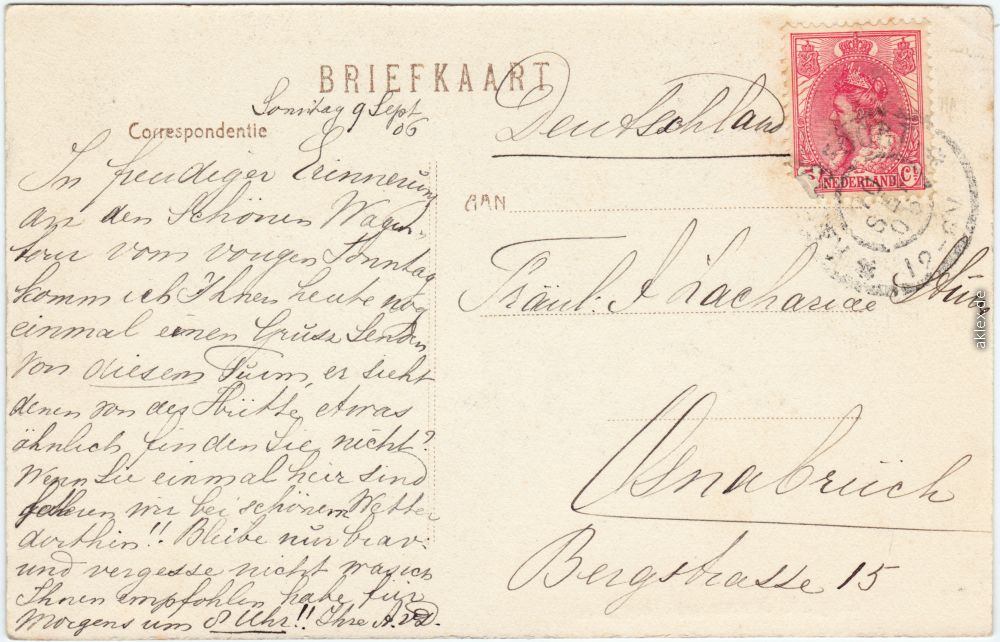 BRIEFKAART
Sonntag 9 Sept
06
Correspondentie
In freudiger Erinnerung
an den Schönen Wagen-
tour vom vorigen Sonntag
komm ich Ihnen heute nog
einmal einen Gruss Senden
von diesem Turm, er sieht
denen von des Hütte etwas
ähnlich, finden Sie nicht?
Wenn Sie einmal heir sind
fahren wir bei schönem Wetter
dorthen!! Bleibe nur brav.
und vergesse nicht was ich
Ihnen empfohlen habe für
Morgens um 8 Uhr!! Ihre A.v.D.
Deutschland
AAN
Fräul. J Zachariae
Osnabrück
Bergstrasse 15
5 Ct
NEDERLAND
aklex.de